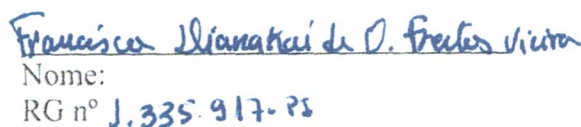 Francisca Dianakai de O. Freitas Vieira
Nome:
RG nº 1.335.917-PI